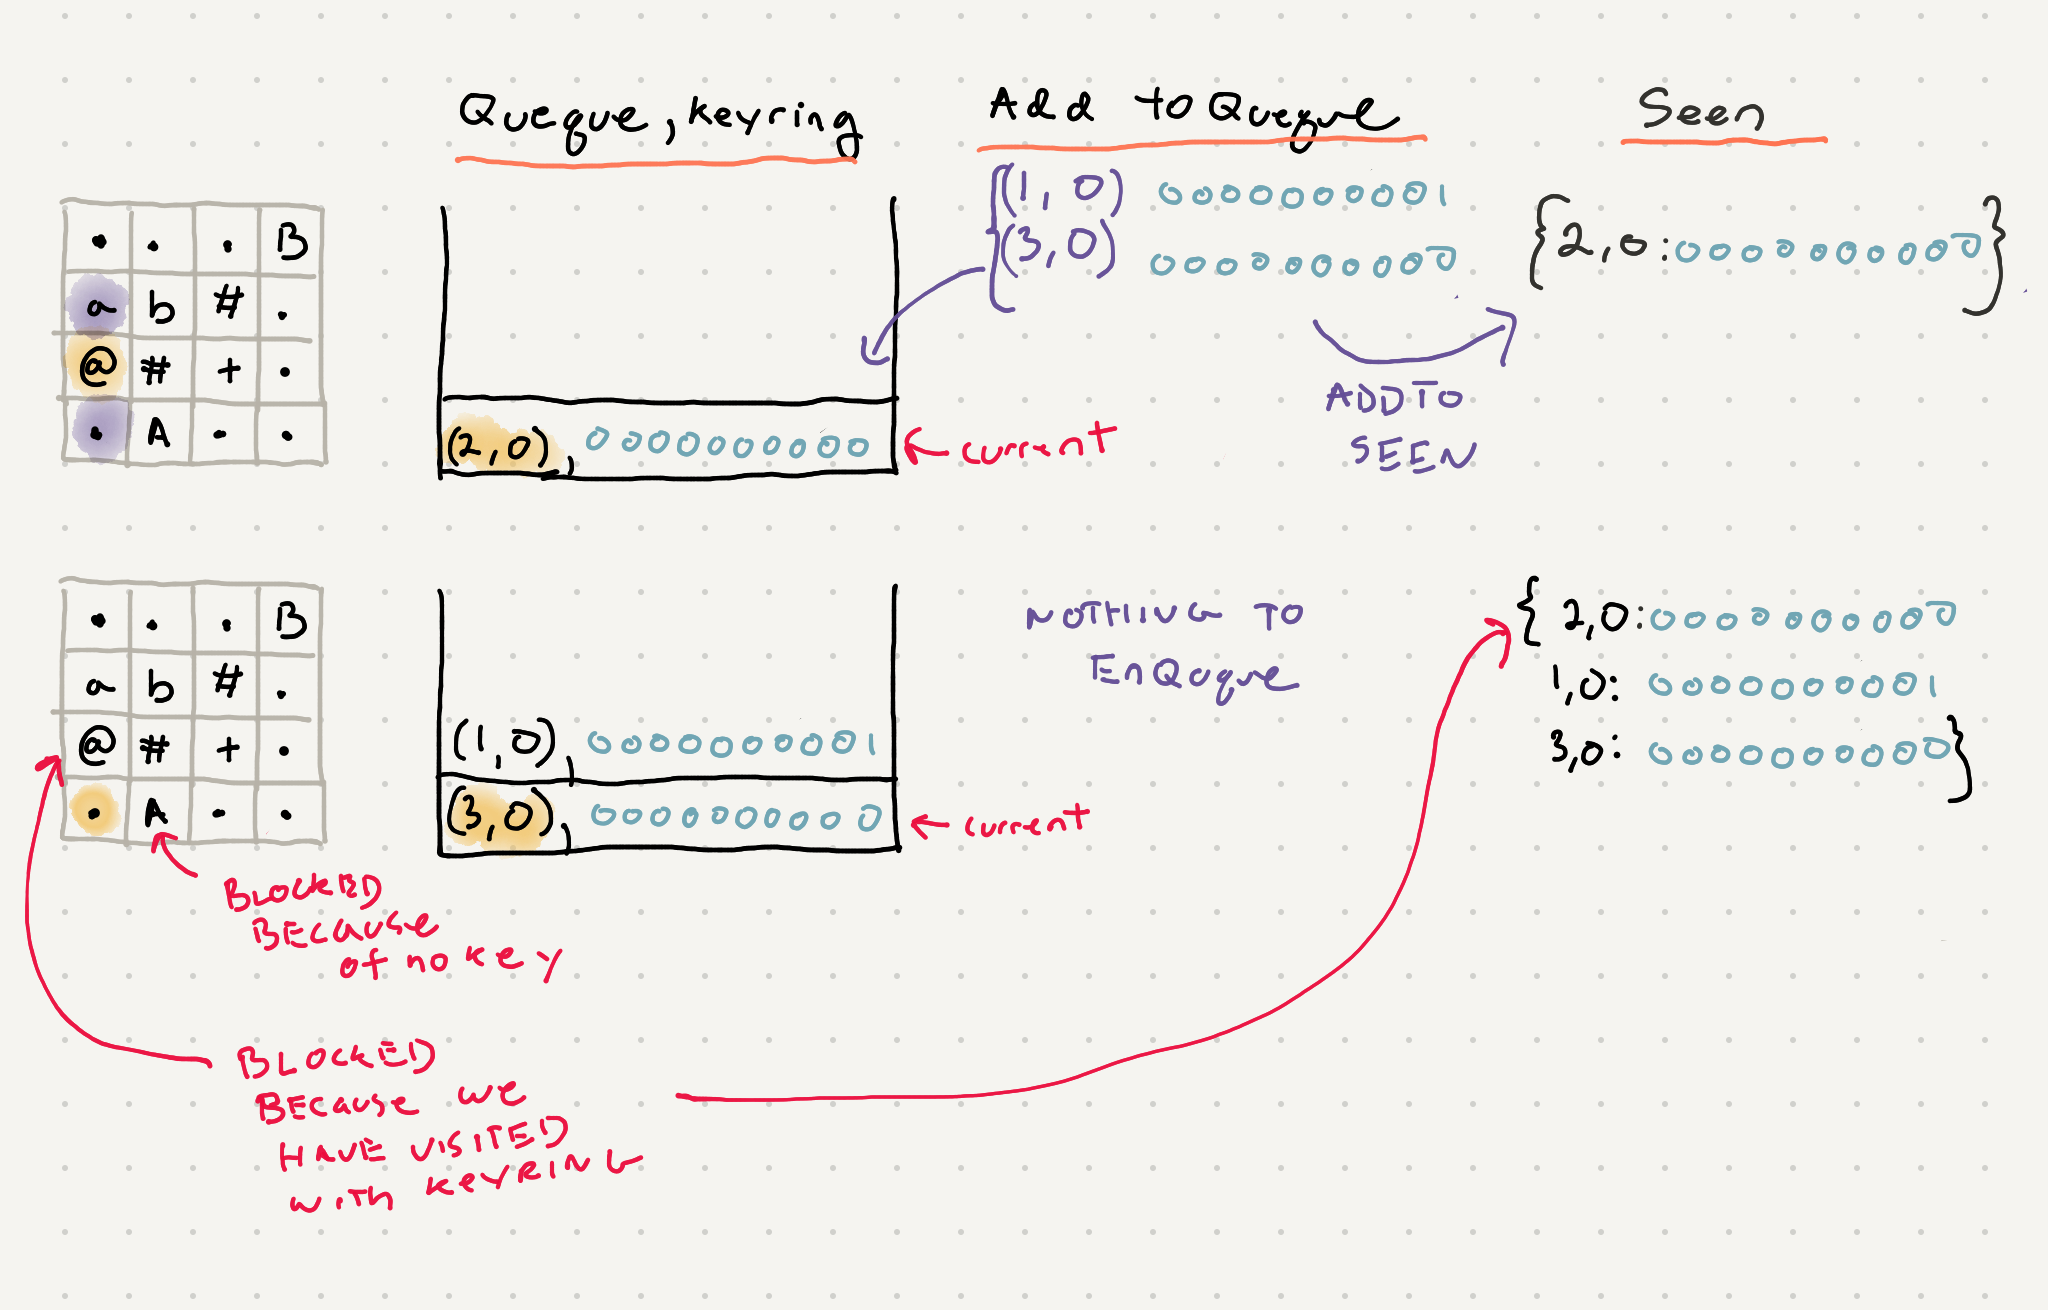 Queque, keyring
Add to Queque
Seen
. . . B
a b # .
@ # + .
. A - .
(1, 0) 0000000001
(3, 0) 0000000000
{2,0:0000000000}
(2,0), 0000000000
current
ADD TO
SEEN
. . . B
a b # .
@ # + .
. A - .
(1,0), 0000000001
(3,0), 0000000000
current
NOTHING TO
EnQuque
{ 2,0:0000000000
1,0: 0000000001
3,0: 0000000000}
BLOCKED
BECAUSE
of no key
BLOCKED
BECAUSE WE
HAVE VISITED
WITH KEYRING